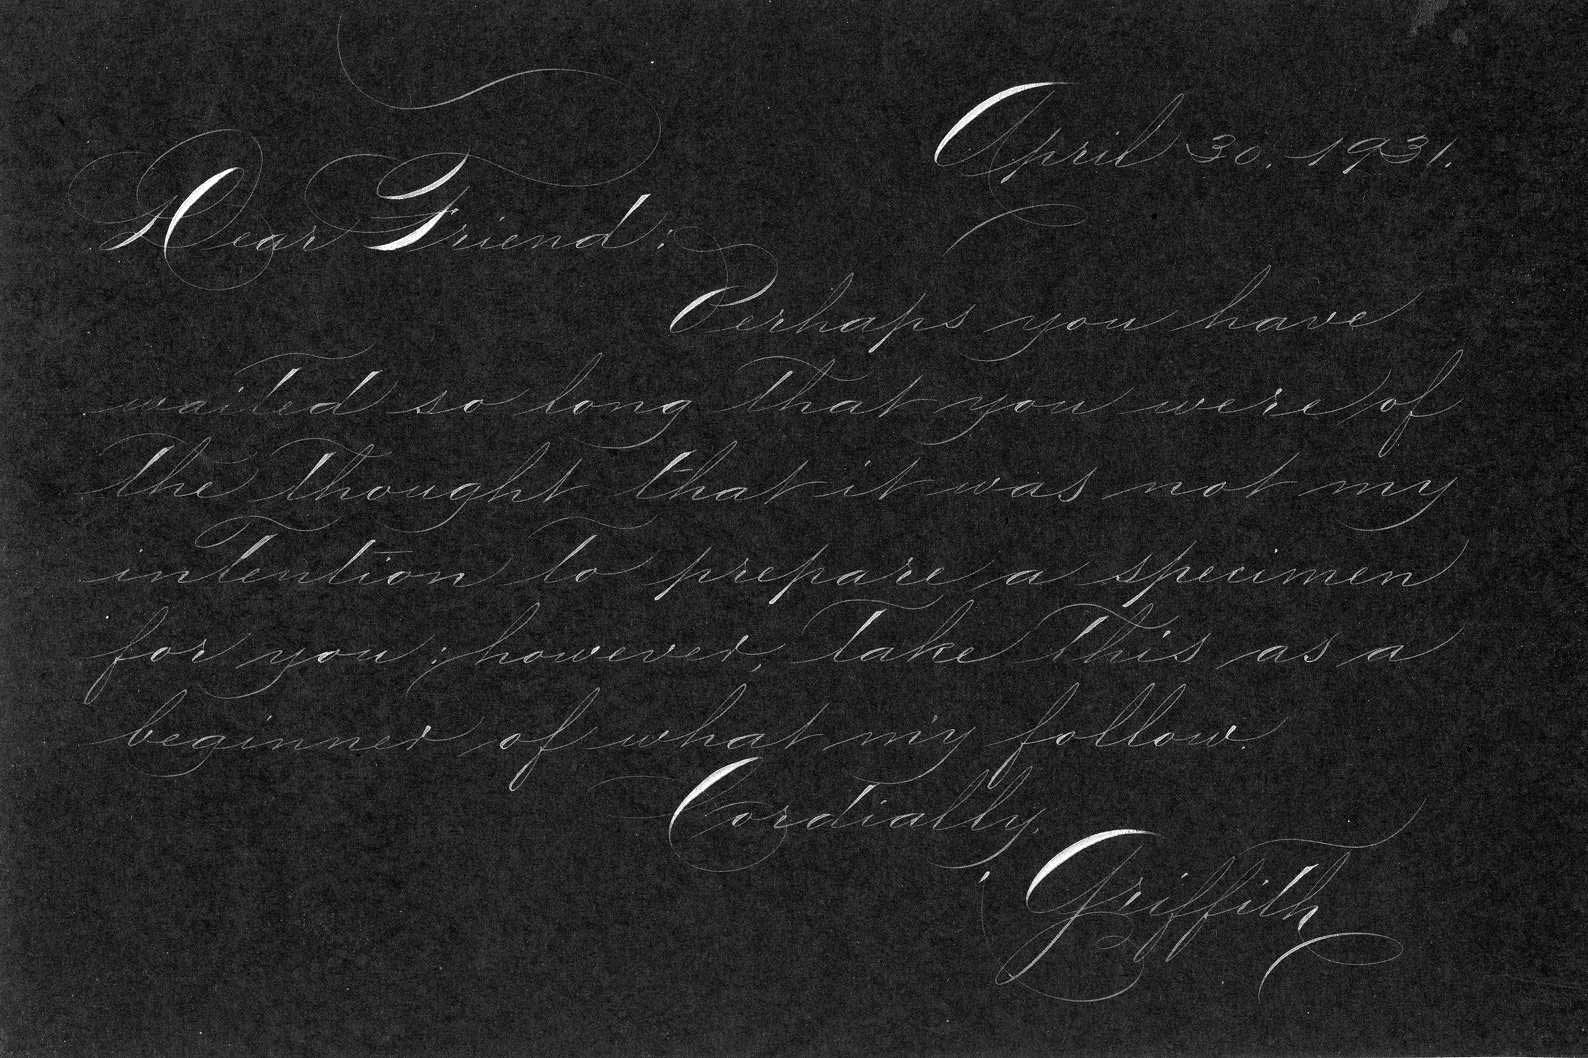 April 30, 1931.
Dear Friend:
Perhaps you have
waited so long that you were of
the thought that it was not my
intention to prepare a specimen
for you; however, take this as a
beginner of what my follow.
Cordially,
Griffith